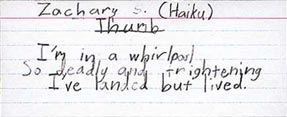 Zachary S. (Haiku)
Thumb
I'm in a whirlpool
So deadly and frightening
I've landed but lived.